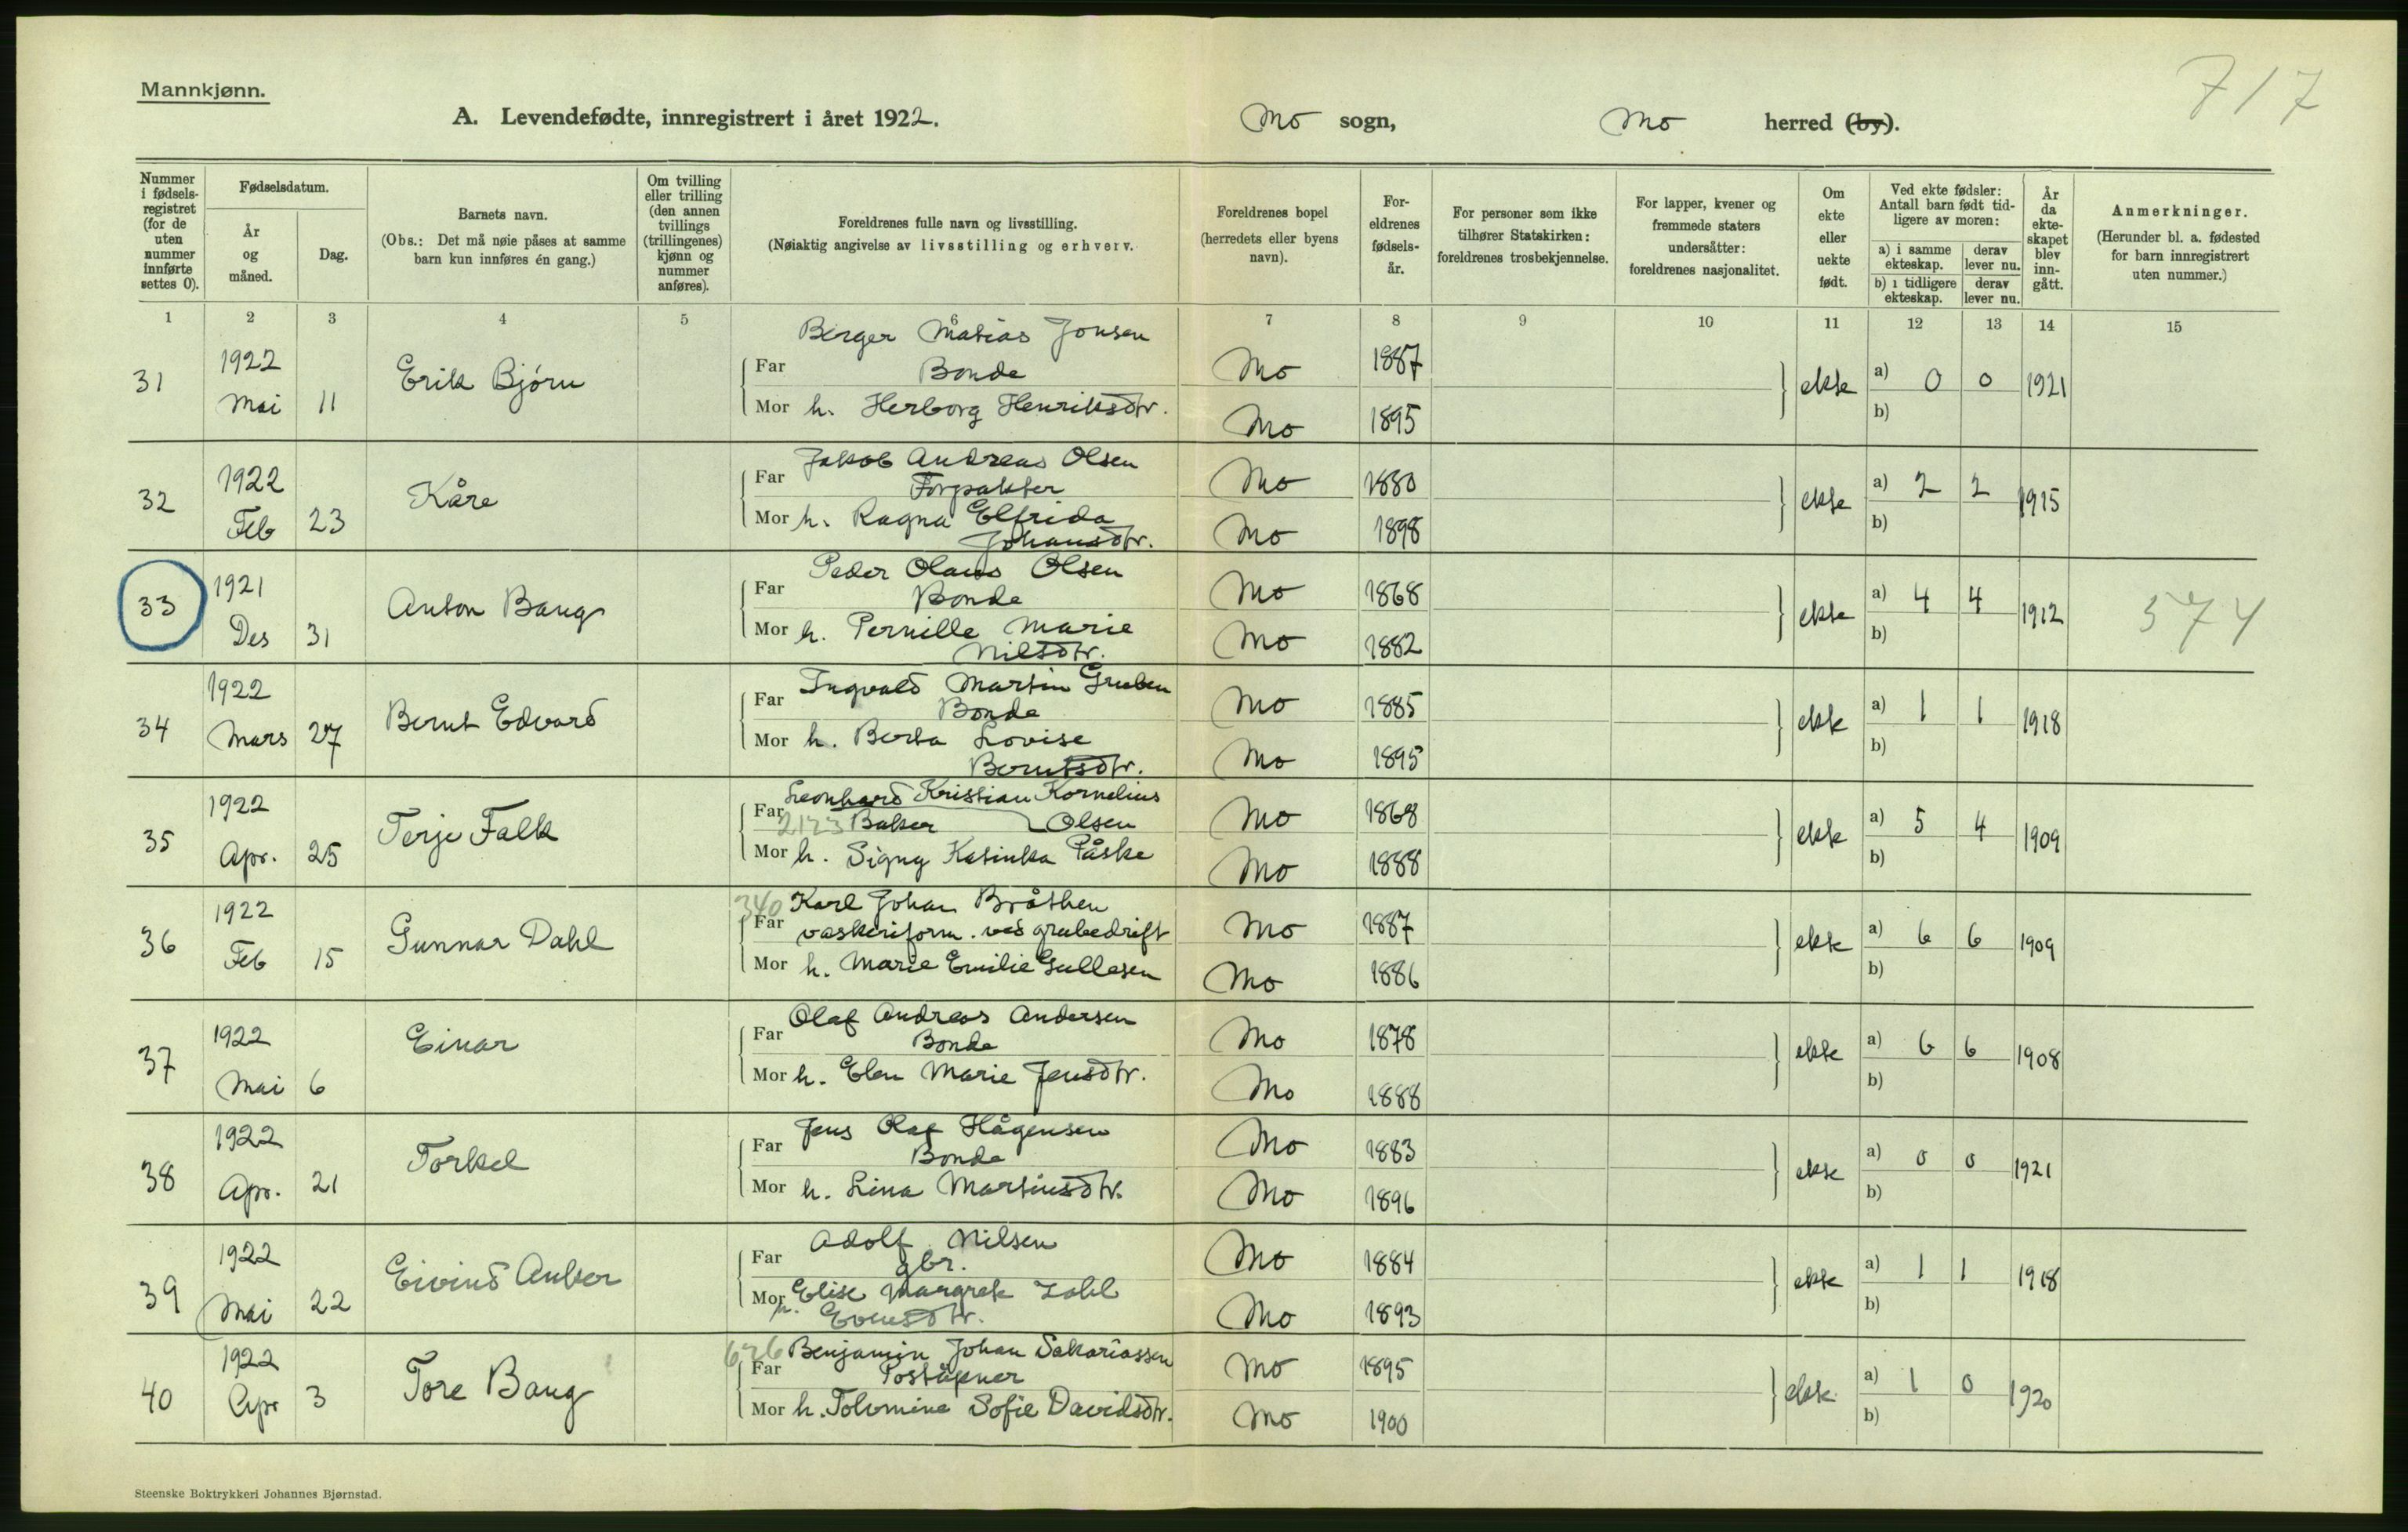 717
Mannkjønn.
A. Levendefødte, innregistrert i året 1922. Mo sogn, Mo herred (by).
Nummer i fødsels-registret (for de uten nummer innførte settes 0).
Fødselsdatum.
År og måned.
Dag.
Barnets navn.
(Obs.: Det må nøie påses at samme barn kun innføres én gang.)
Om tvilling eller trilling (den annen tvillings (trillingenes) kjønn og nummer anføres).
Foreldrenes fulle navn og livsstilling.
(Nøiaktig angivelse av livsstilling og erhverv.
Foreldrenes bopel (herredets eller byens navn).
For-eldrenes fødsels-år.
For personer som ikke tilhører Statskirken: foreldrenes trosbekjennelse.
For lapper, kvener og fremmede staters undersåtter: foreldrenes nasjonalitet.
Om ekte eller uekte født.
Ved ekte fødsler: Antall barn født tid-ligere av moren:
a) i samme ekteskap.
derav lever nu.
b) i tidligere ekteskap.
derav lever nu.
År da ekte-skapet blev inn-gått.
Anmerkninger.
(Herunder bl. a. fødested for barn innregistrert uten nummer.)
1 2 3 4 5 6 7 8 9 10 11 12 13 14 15
Berger Matias Jonsen
31 1922 Mai 11 Erik Bjórn Far Bonde Mo 1887 ekte a) 0 0 1921
Mor h. Herborg Henriksdtr. Mo 1895 b)
Jakob Andreas Olsen
32 1922 Feb 23 Kåre Far Forpakter Mo 1880 ekte a) 2 2 1915
Mor h. Ragna Elfrida Johansdtr. Mo 1898 b)
Peder Olaus Olsen
33 1921 Des 31 Anton Baug Far Bonde Mo 1868 ekte a) 4 4 1912 574
Mor h. Pernille Marie Nilsdtr. Mo 1882 b)
Ingvald Martin Gruben
34 1922 Mars 27 Bernt Edvard Far Bonde Mo 1885 ekte a) 1 1 1918
Mor h. Berta Lovise Berntsdtr. Mo 1895 b)
Leonhard Kristian Kornelius Olsen
35 1922 Apr. 25 Terje Falk Far 2123 Baker Mo 1868 ekte a) 5 4 1909
Mor h. Signy Katinka Påske Mo 1888 b)
340 Karl Johan Bråthen
36 1922 Feb 15 Gunnar Dahl Far vaskeriform. ved grubedrift Mo 1887 ekte a) 6 6 1909
Mor h. Marie Emilie Gullesen Mo 1886 b)
Olaf Andreas Andersen
37 1922 Mai 6 Einar Far Bonde Mo 1878 ekte a) 6 6 1908
Mor h. Elen Marie Jensdtr. Mo 1888 b)
Jens Olaf Hågensen
38 1922 Apr. 21 Torkel Far Bonde Mo 1883 ekte a) 0 0 1921
Mor h. Lina Martinsdtr. Mo 1896 b)
Adolf Nilsen
39 1922 Mai 22 Eivind Anker Far gbr. Mo 1884 ekte a) 1 1 1918
Mor h. Elise Margrete Zahl Mo 1893 b)
626 Benjamin Johan Sakariassen
40 1922 Apr 3 Tore Baug Far Poståpner Mo 1895 ekte a) 1 0 1920
Mor h. Tolomine Sofie Davidsdtr. Mo 1900 b)
Steenske Boktrykkeri Johannes Bjørnstad.